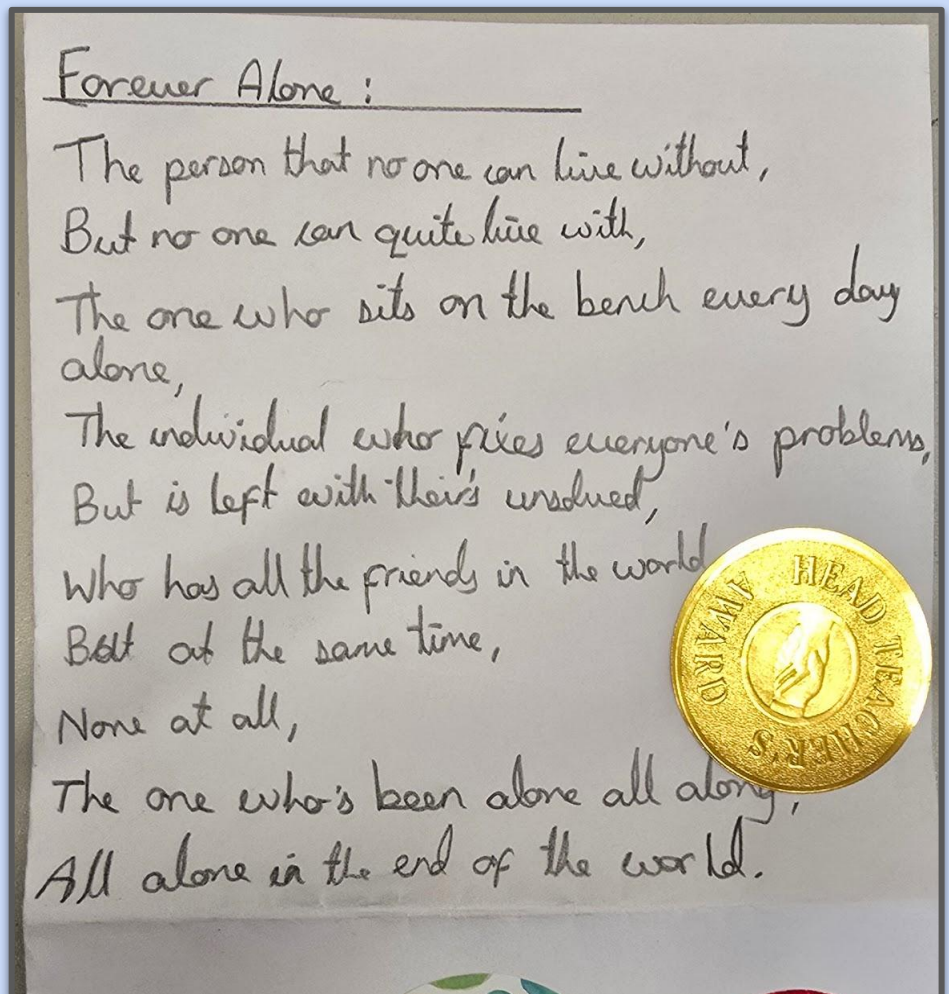 Forever Alone:
The person that no one can live without,
But no one can quite live with,
The one who sits on the bench every day
alone,
The individual who fixes everyone's problems,
But is left with their's unsolved,
Who has all the friends in the world
But at the same time,
None at all,
The one who's been alone all along,
All alone in the end of the world.
HEAD TEACHER'S AWARD